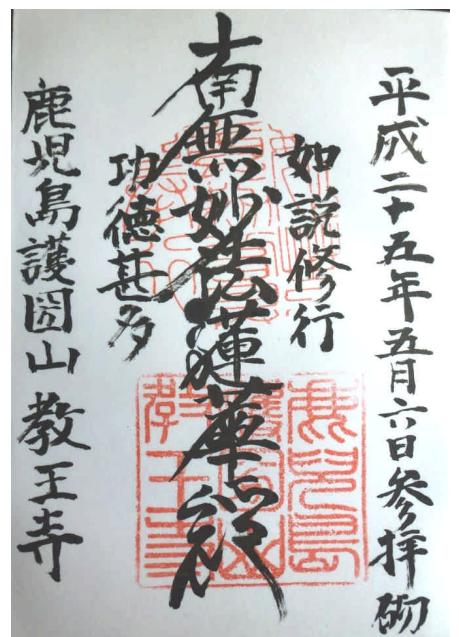 平成二十五年五月六日参拝砌
如説修行
南無妙法蓮華経
功徳甚多
鹿児島護国山教王寺
鹿兒島